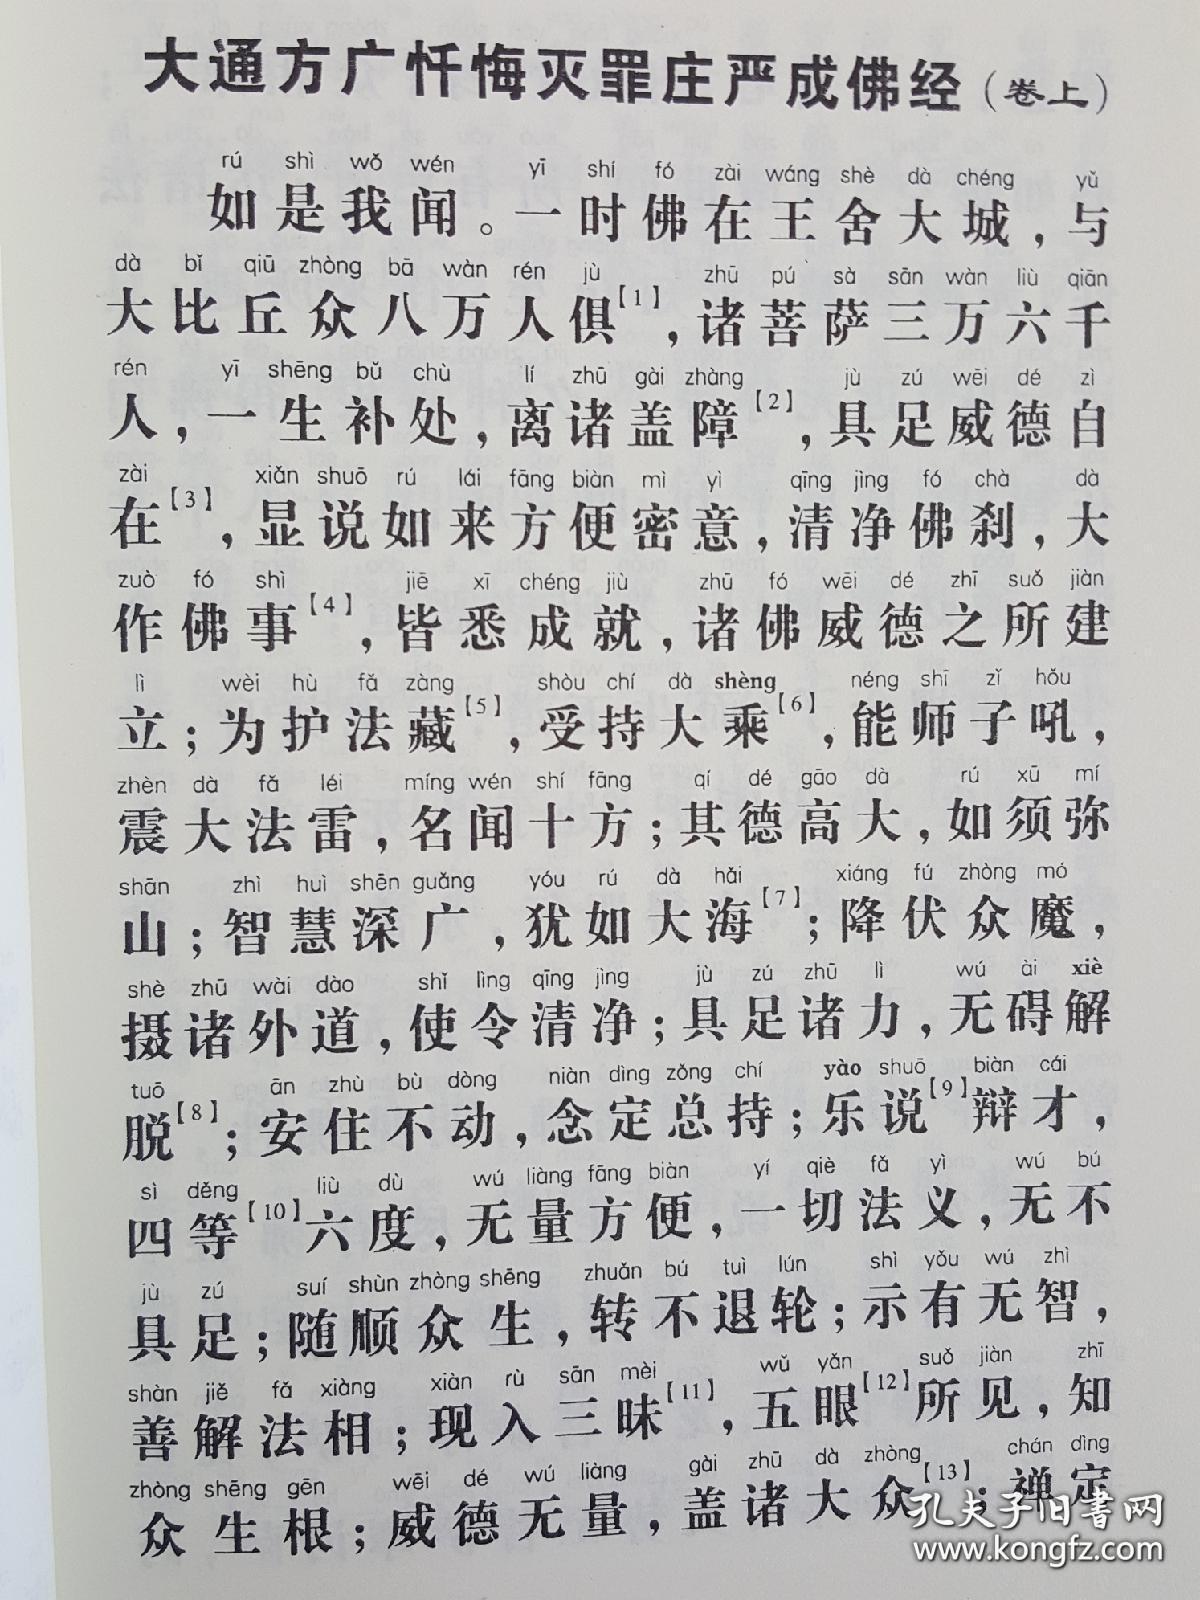 大通方广忏悔灭罪庄严成佛经（卷上）
rú shì wǒ wén yī shí fó zài wáng shè dà chéng yǔ
如是我闻。一时佛在王舍大城，与
dà bǐ qiū zhòng bā wàn rén jù zhū pú sà sān wàn liù qiān
大比丘众八万人俱【1】，诸菩萨三万六千
rén yī shēng bǔ chù lí zhū gài zhàng jù zú wēi dé zì
人，一生补处，离诸盖障【2】，具足威德自
zài xiǎn shuō rú lái fāng biàn mì yì qīng jìng fó chà dà
在【3】，显说如来方便密意，清净佛刹，大
zuò fó shì jiē xī chéng jiù zhū fó wēi dé zhī suǒ jiàn
作佛事【4】，皆悉成就，诸佛威德之所建
lì wèi hù fǎ zàng shòu chí dà shèng néng shī zǐ hǒu
立；为护法藏【5】，受持大乘【6】，能师子吼，
zhèn dà fǎ léi míng wén shí fāng qí dé gāo dà rú xū mí
震大法雷，名闻十方；其德高大，如须弥
shān zhì huì shēn guǎng yóu rú dà hǎi xiáng fú zhòng mó
山；智慧深广，犹如大海【7】；降伏众魔，
shè zhū wài dào shǐ lìng qīng jìng jù zú zhū lì wú ài xiè
摄诸外道，使令清净；具足诸力，无碍解
tuō ān zhù bù dòng niàn dìng zǒng chí yào shuō biàn cái
脱【8】；安住不动，念定总持；乐说【9】辩才，
sì děng liù dù wú liàng fāng biàn yí qiè fǎ yì wú bú
四等【10】六度，无量方便，一切法义，无不
jù zú suí shùn zhòng shēng zhuǎn bú tuì lún shì yǒu wú zhì
具足；随顺众生，转不退轮；示有无智，
shàn jiě fǎ xiàng xiàn rù sān mèi wǔ yǎn suǒ jiàn zhī
善解法相；现入三昧【11】，五眼【12】所见，知
zhòng shēng gēn wēi dé wú liàng gài zhū dà zhòng chán dìng
众生根；威德无量，盖诸大众【13】；禅定
孔夫子旧书网
www.kongfz.com